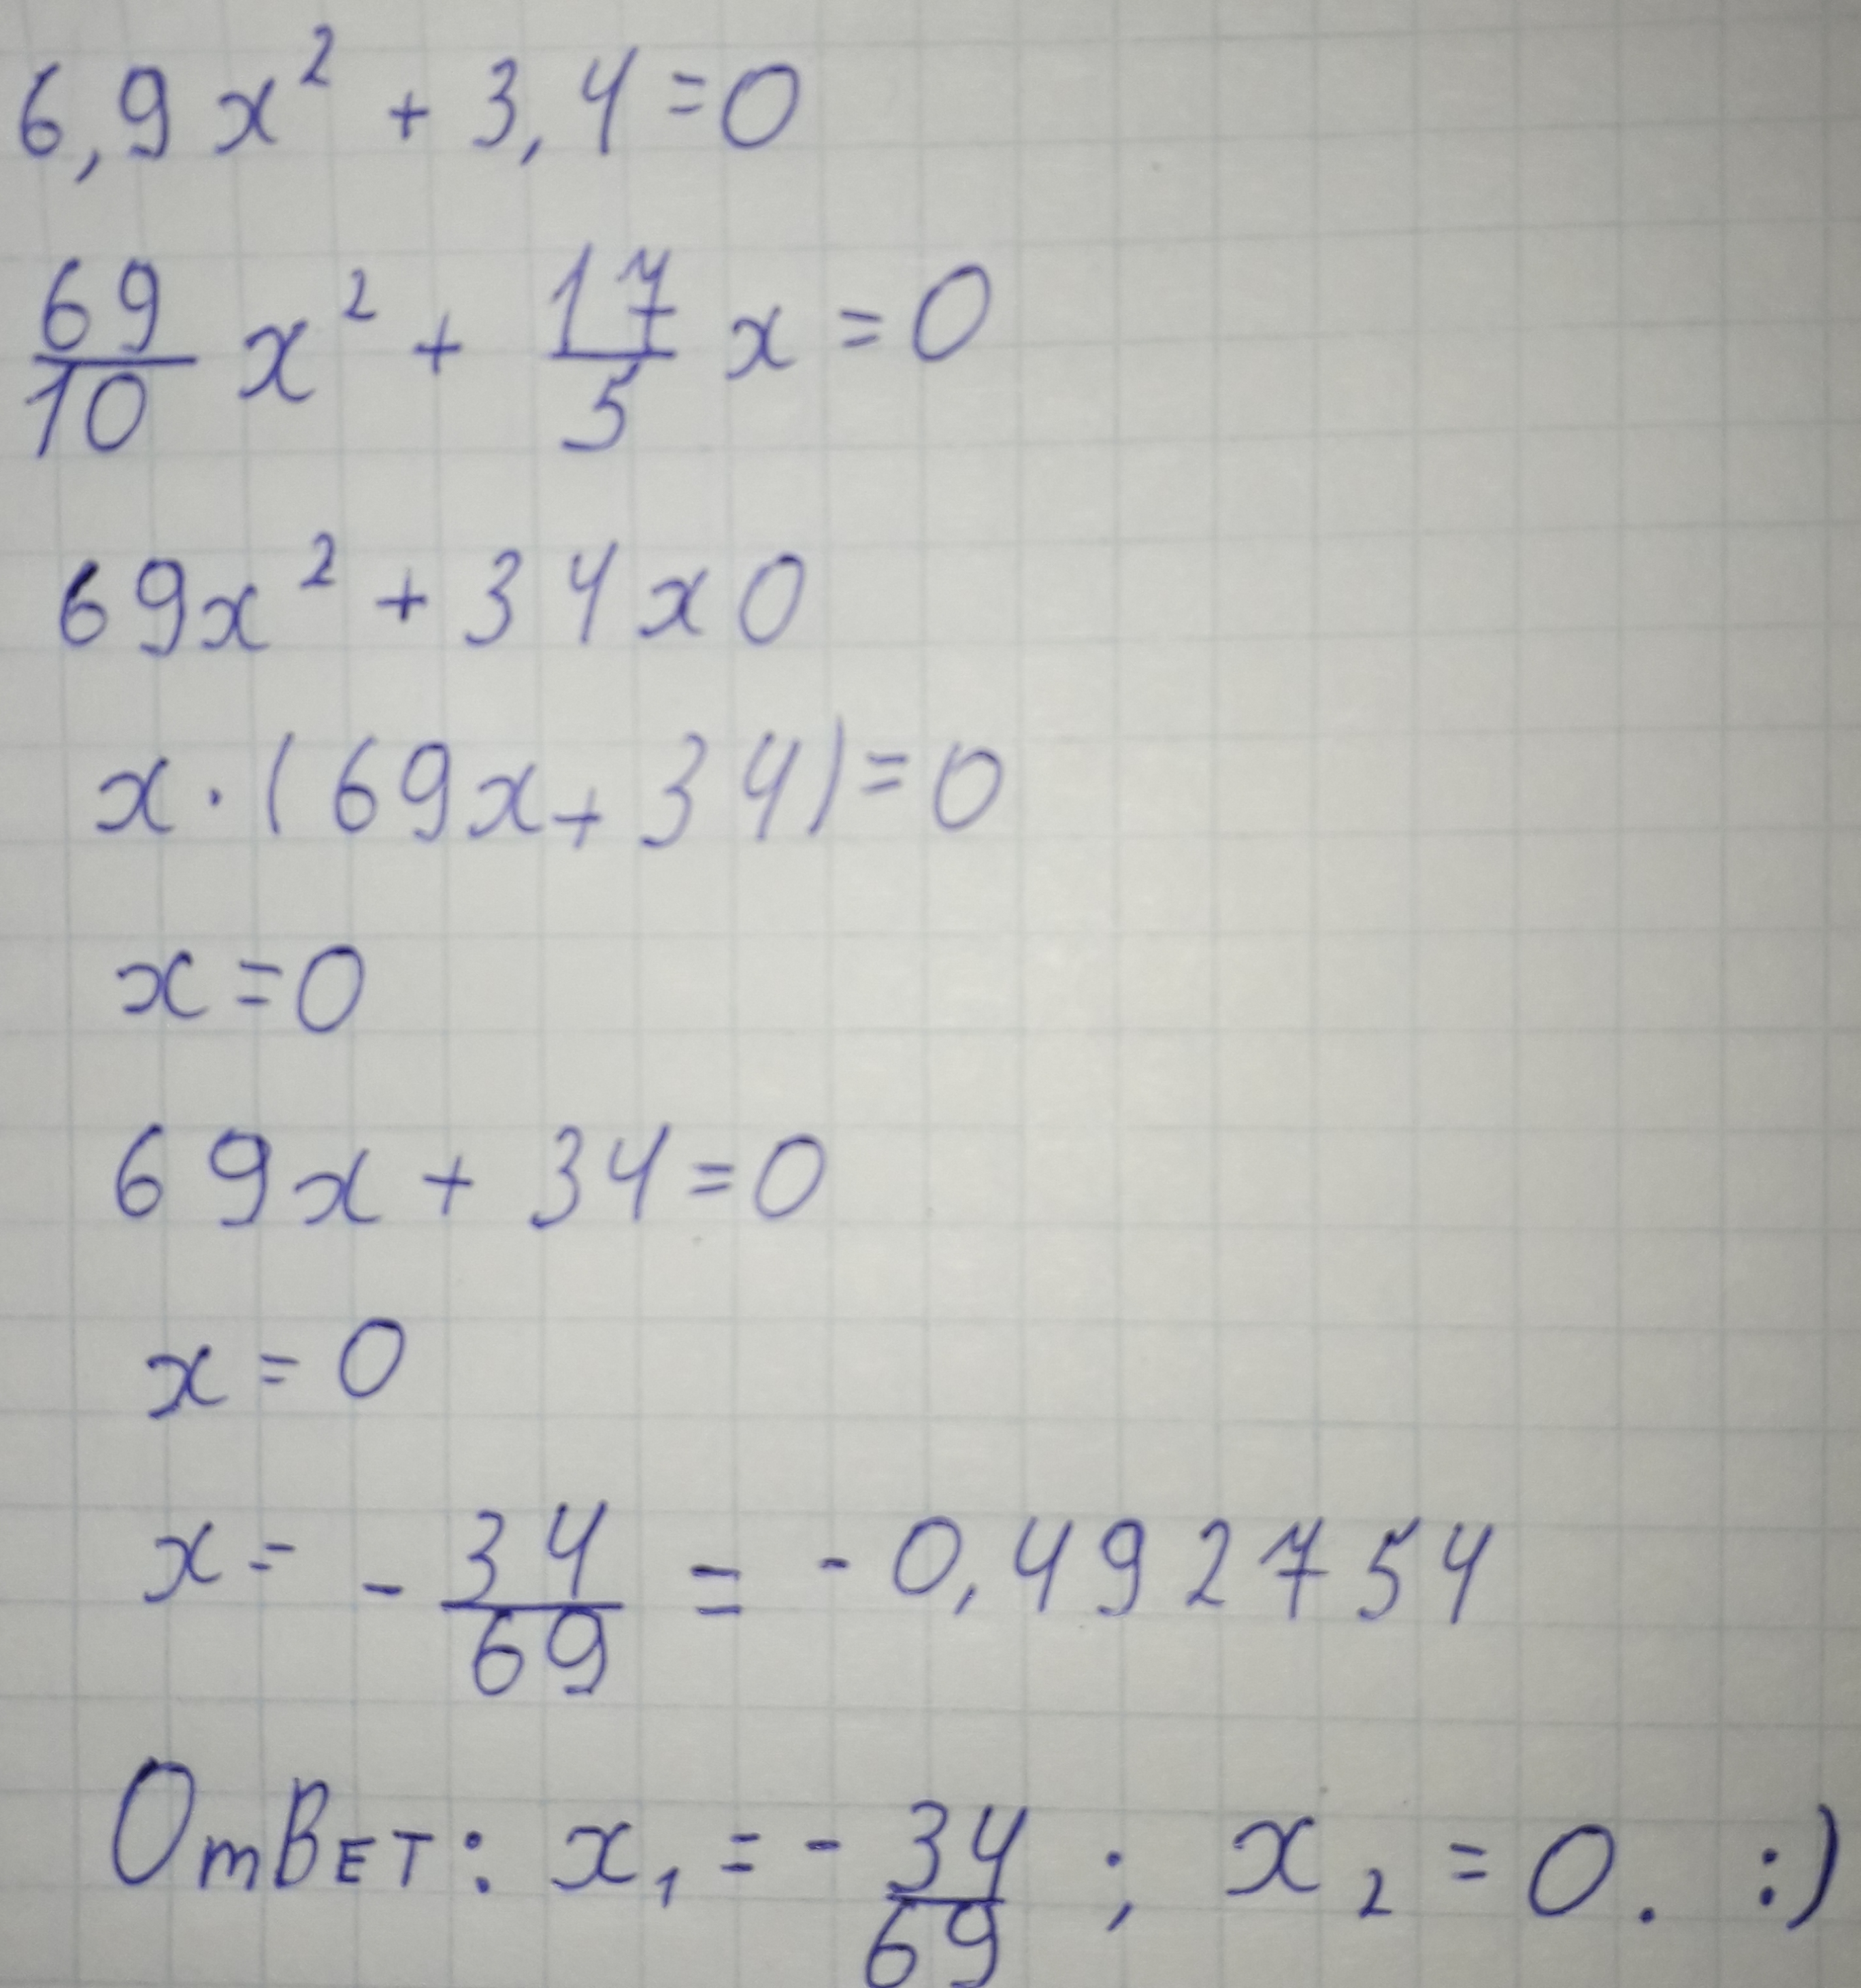 6,9x² + 3,4=0
69/10 x² + 17/5 x = 0
69x² + 34x0
x·(69x+34)=0
x=0
69x + 34=0
x=0
x= -34/69 = -0,492754
Ответ: x₁ = -34/69 ; x₂ = 0. :)